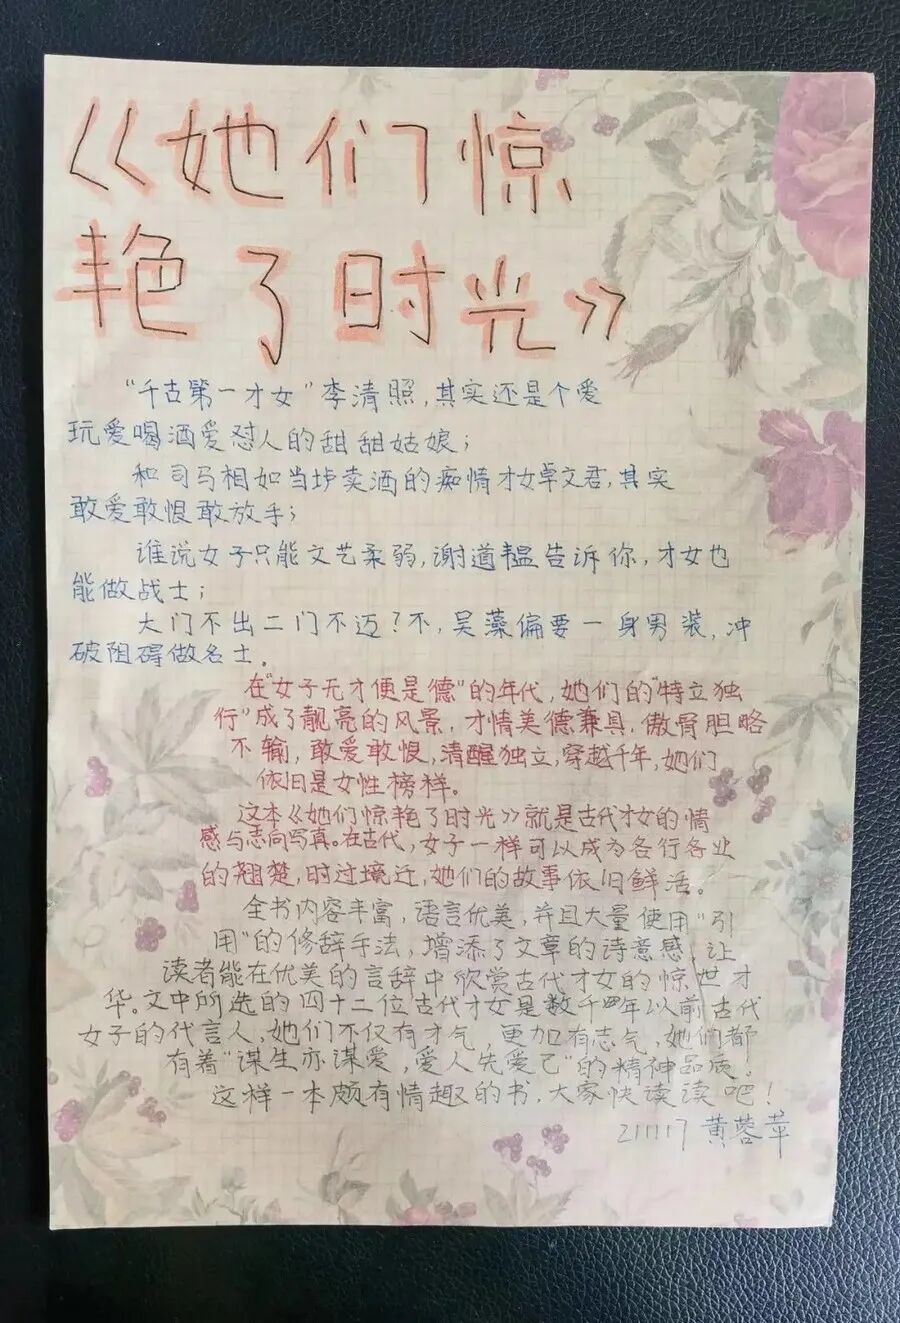 《她们惊
艳了时光》
“千古第一才女”李清照，其实还是个爱
玩爱喝酒爱怼人的甜甜姑娘；
和司马相如当垆卖酒的痴情才女卓文君，其实
敢爱敢恨敢放手；
谁说女子只能文艺柔弱，谢道韫告诉你，才女也
能做战士；
大门不出二门不迈？不，吴藻偏要一身男装，冲
破阻碍做名士。
在“女子无才便是德”的年代，她们的“特立独
行”成了靓亮的风景，才情美德兼具，傲骨胆略
不输，敢爱敢恨，清醒独立，穿越千年，她们
依旧是女性榜样。
这本《她们惊艳了时光》就是古代才女的情
感与志向写真。在古代，女子一样可以成为各行各业
的翘楚，时过境迁，她们的故事依旧鲜活。
全书内容丰富，语言优美，并且大量使用“引
用”的修辞手法，增添了文章的诗意感，让
读者能在优美的言辞中欣赏古代才女的惊世才
华。文中所选的四十二位古代才女是数千年以前古代
女子的代言人，她们不仅有才气，更加有志气，她们都
有着“谋生亦谋爱，爱人先爱己”的精神品质，
这样一本颇有情趣的书，大家快读读吧！
211117 黄蓉苹